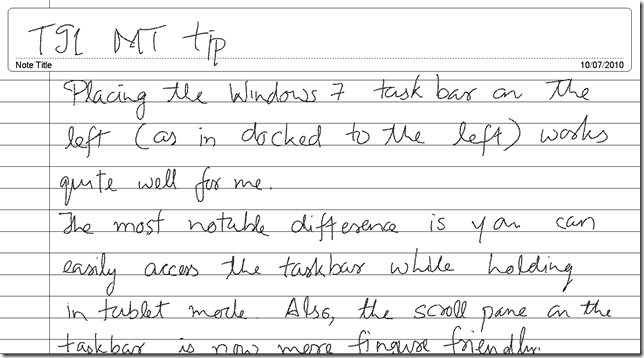 T91 MT tip
Note Title
10/07/2010
Placing the Windows 7 task bar on the
left (as in docked to the left) works
quite well for me.
The most notable difference is you can
easily access the taskbar while holding
in tablet mode. Also, the scroll pane on the
taskbar is now more fingure friendly.